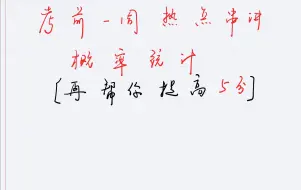 考前一周热点串讲
概率统计
[再帮你提高5分]